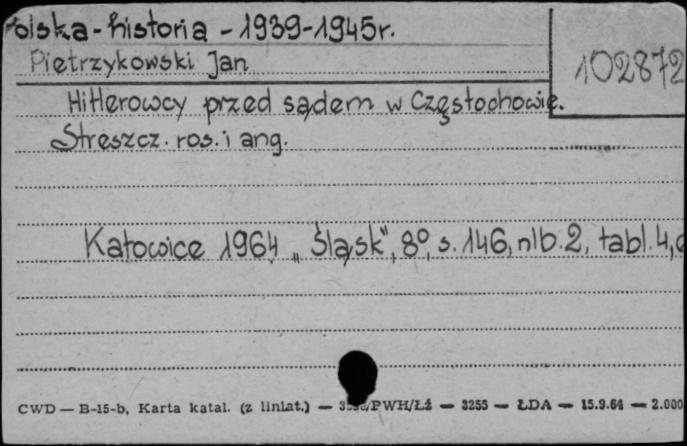 Polska - historia - 1939-1945r.
102872
Pietrzykowski Jan
Hitlerowcy przed sądem w Częstochowie.
Streszcz. ros. i ang.
Katowice 1964 „Śląsk", 8°, s. 146, nlb. 2, tabl. 4,
CWD — B-15-b, Karta katal. (z liniat.) — /PWH/Łź — 3255 — ŁDA — 15.9.64 — 2.000